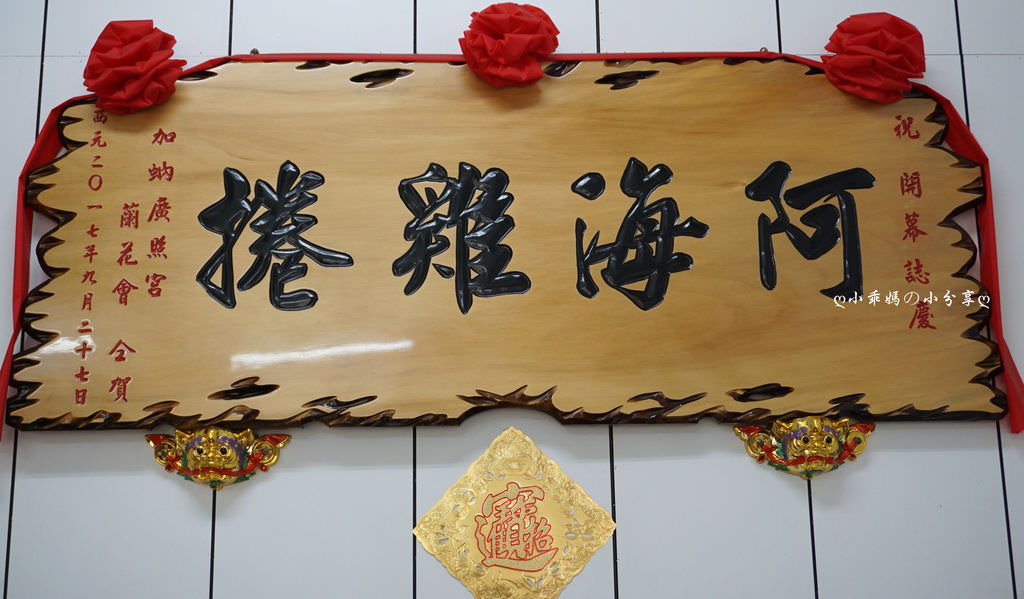 祝開幕誌慶
阿海雞捲
加蚋廣照宮
蘭花會 仝賀
西元二〇一七年九月二十七日
招財進寶
ღ小乖媽の小分享ღ